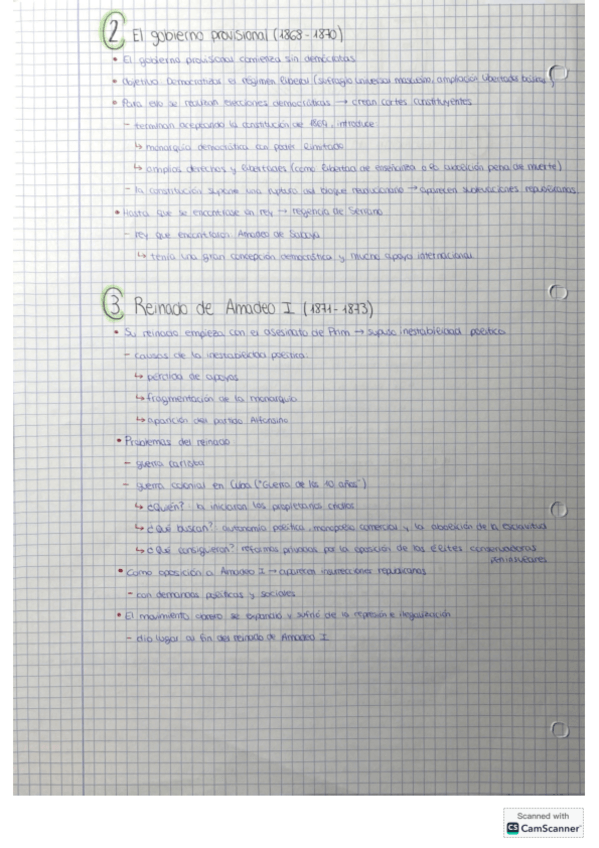 2 El gobierno provisional (1868-1870)
• El gobierno provisional comienza sin demócratas
• Objetivo: Democratizar el régimen liberal (sufragio universal masculino, ampliación libertades
• Para eso se realizan elecciones democráticas → crean cortes constituyentes
- terminan aceptando la constitución de 1869, introduce
↳ monarquía democrática con poder limitado
↳ amplios derechos y libertades (como libertad de enseñanza o la abolición pena de muerte)
- la constitución supone una ruptura del bloque revolucionario → aparecen sublevaciones republicanas
• Hasta que se encontrase un rey → regencia de Serrano
- rey que encontraron: Amadeo de Saboya
↳ tenía una gran concepción democrática y mucho apoyo internacional
3 Reinado de Amadeo I (1871-1873)
• Su reinado empieza con el asesinato de Prim → supuso inestabilidad política
- causas de la inestabilidad política:
↳ pérdida de apoyos
↳ fragmentación de la monarquía
↳ aparición del partido Alfonsino
• Problemas del reinado
- guerra carlista
- guerra colonial en Cuba ("Guerra de los 10 años")
↳ ¿quién? la iniciaron los propietarios criollos
↳ ¿qué buscan? autonomía política, monopolio comercial y la abolición de la esclavitud
↳ ¿qué consiguieron? reformas privadas por la oposición de las élites conservadoras
peninsulares
• Como oposición a Amadeo I → aparecen insurrecciones republicanas
- con demandas políticas y sociales
• El movimiento obrero se expandió y sufrió de la represión e ilegalización
- dio lugar al fin del reinado de Amadeo I
Scanned with
CS CamScanner